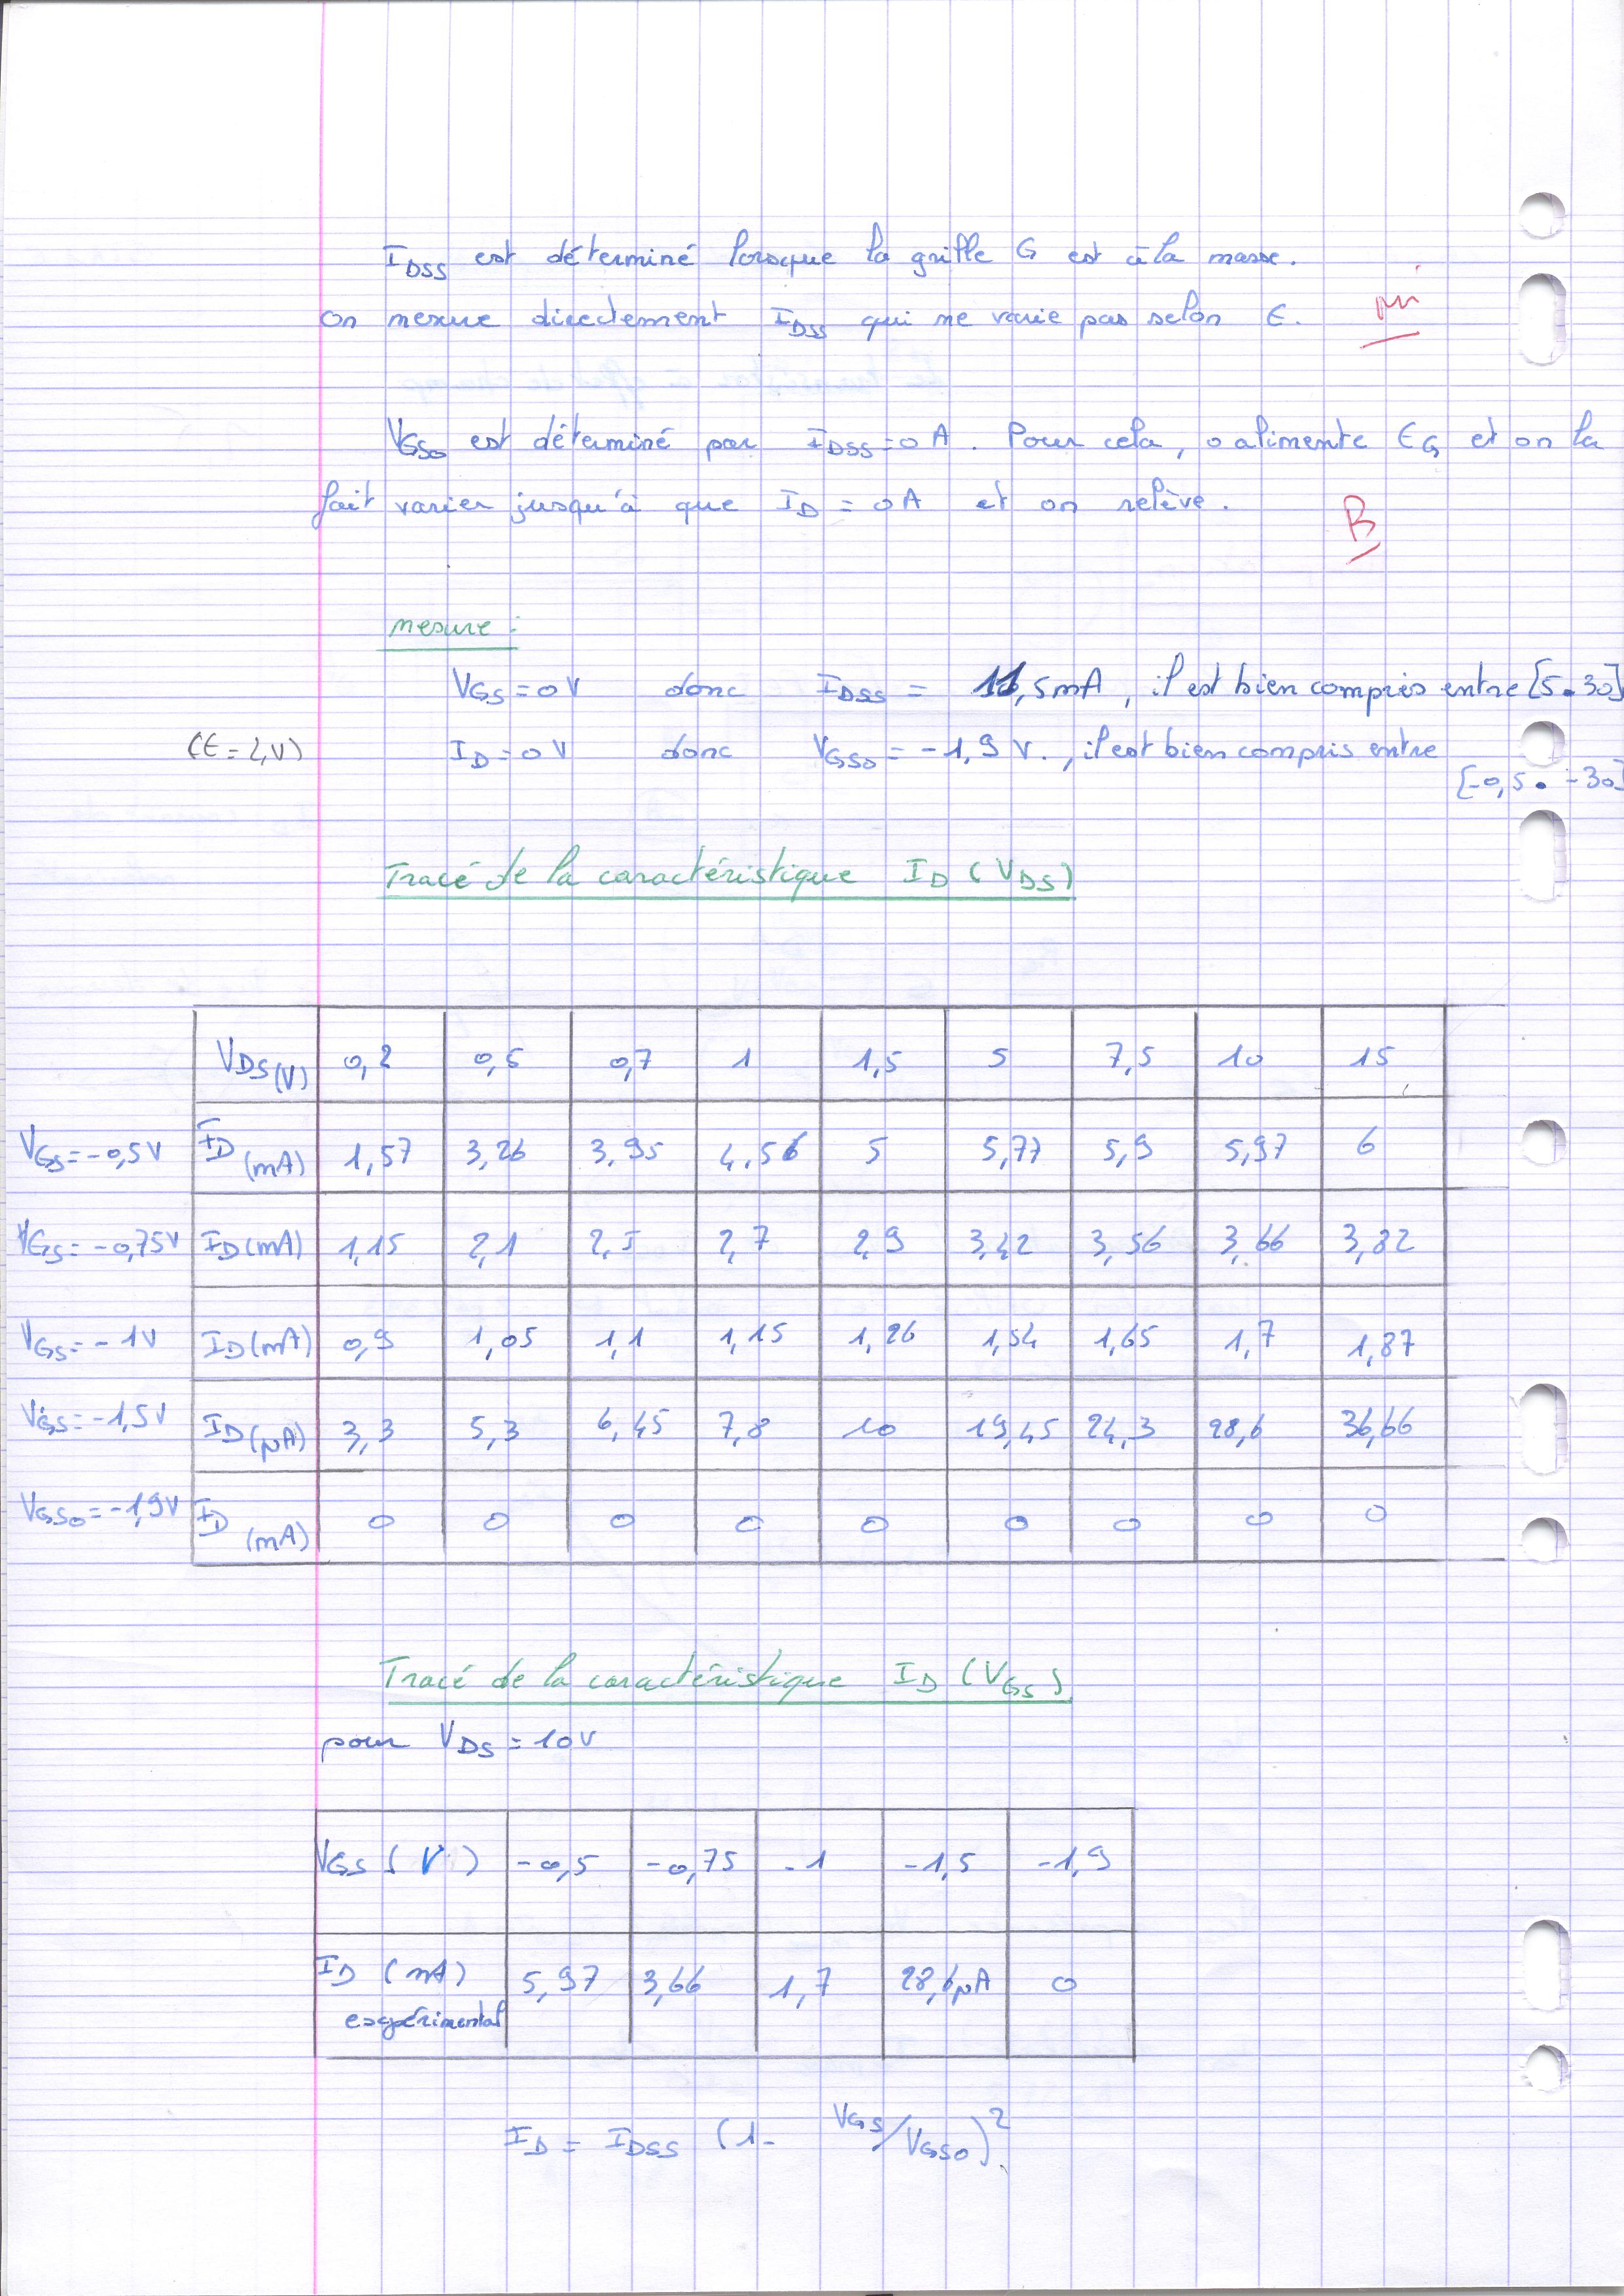 IDSS est déterminé lorsque la grille G est à la masse.
on mesure directement IDSS qui ne varie pas selon E.
VGSO est déterminé par IDSS = 0 A. Pour cela, o alimente EG et on la
fait varier jusqu'à que ID = 0 A et on relève.
B
mesure :
VGS = 0 V donc IDSS = 11,5 mA, il est bien compris entre [5 . 30]
(E = 2,V) ID = 0 V donc VGSO = -1,9 V., il est bien compris entre
[-0,5 . -30]
Tracé de la caractéristique ID (VDS)
VDS(V) 0,2 0,5 0,7 1 1,5 5 7,5 10 15
VGS = -0,5V ID (mA) 1,57 3,26 3,95 4,56 5 5,77 5,9 5,97 6
VGS = -0,75V ID (mA) 1,15 2,1 2,5 2,7 2,9 3,42 3,56 3,66 3,82
VGS = -1V ID (mA) 0,9 1,05 1,1 1,15 1,26 1,54 1,65 1,7 1,87
VGS = -1,5V ID (µA) 3,3 5,3 6,45 7,8 10 19,45 24,3 28,6 36,66
VGSO = -1,9V ID (mA) 0 0 0 0 0 0 0 0 0
Tracé de la caractéristique ID (VGS)
pour VDS = 10V
VGS (V) -0,5 -0,75 -1 -1,5 -1,9
ID (mA) 5,97 3,66 1,7 28,6µA 0
expérimental
ID = IDSS (1 - VGS/VGSO)²